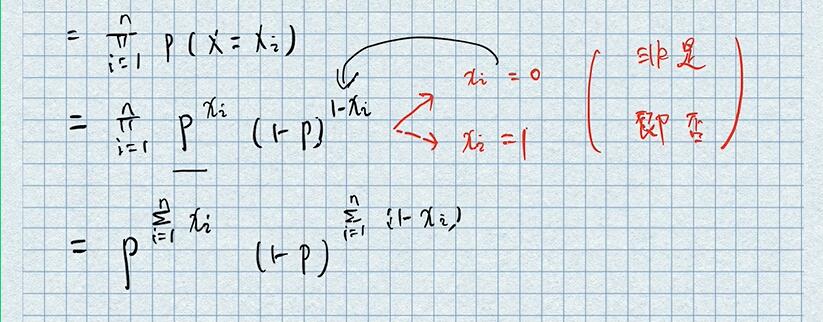 = ∏_{i=1}^{n} P(X = x_i)
= ∏_{i=1}^{n} p^{x_i} (1-p)^{1-x_i}
x_i = 0
x_i = 1
非是
即否
= p^{∑_{i=1}^{n} x_i} (1-p)^{∑_{i=1}^{n} (1-x_i)}